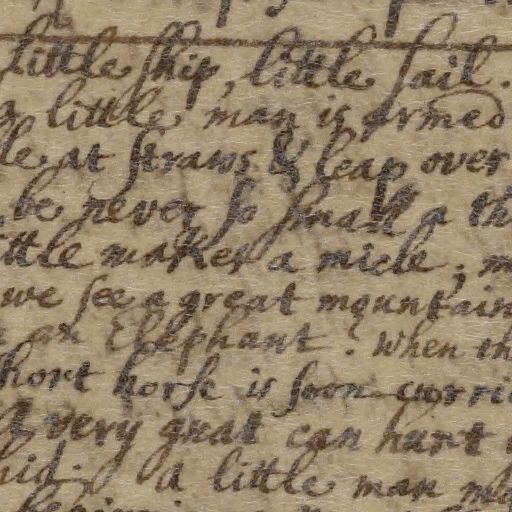 little ship, little sail.
little man is armed
at straws & leap over
be never so small a
makes a micle;
we see a great mountain
an Elephant. When
horse is soon
very gnat can hurt
a little man